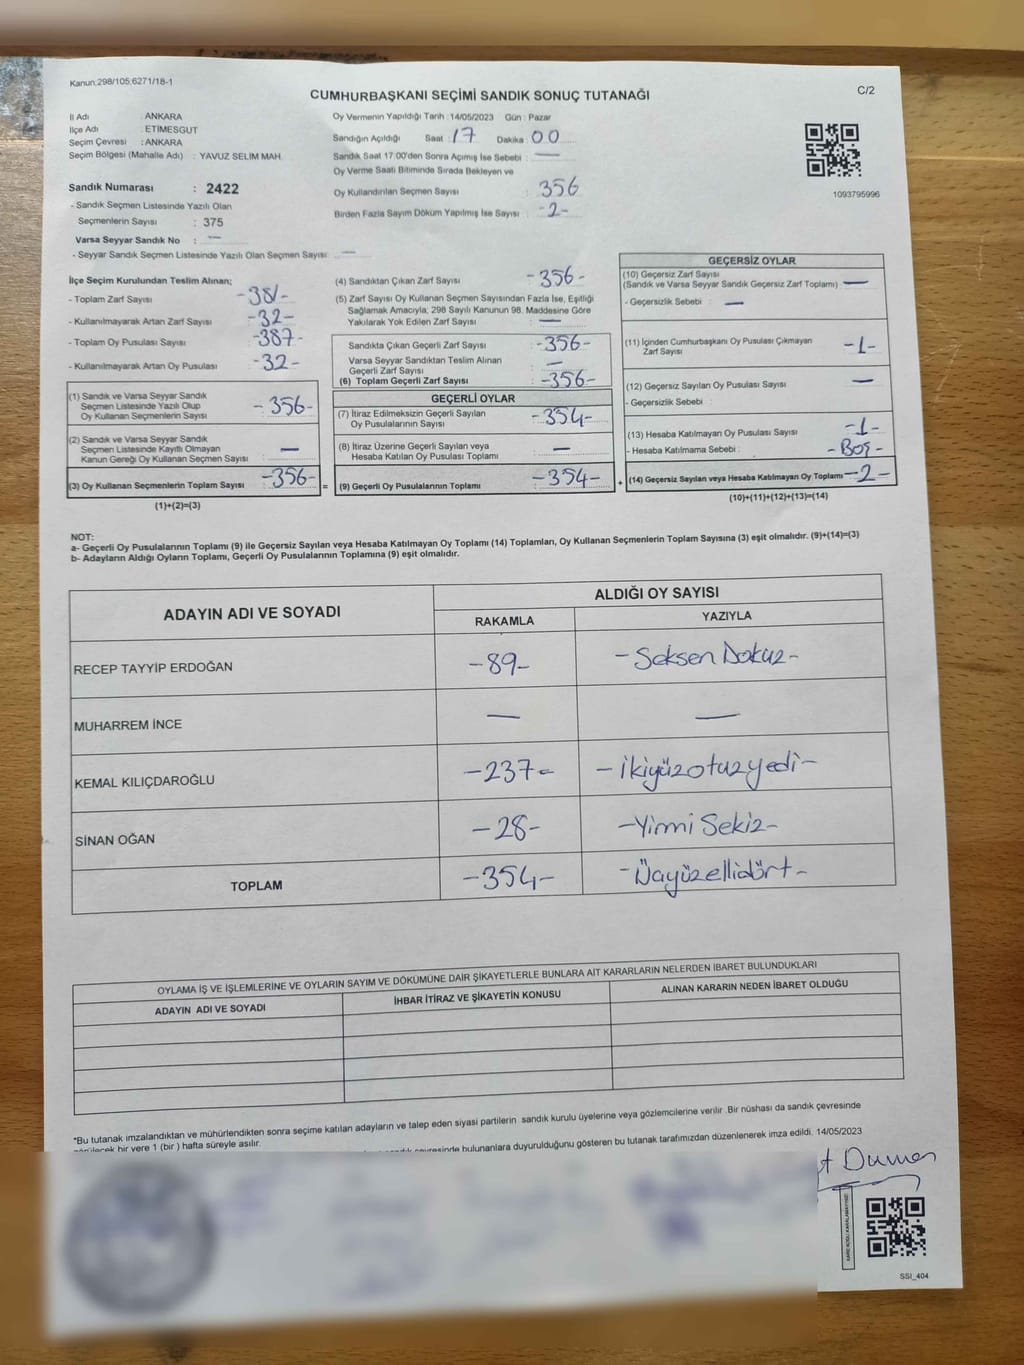 Kanun:298/105;6271/18-1
C/2
CUMHURBAŞKANI SEÇİMİ SANDIK SONUÇ TUTANAĞI
İl Adı : ANKARA
İlçe Adı : ETİMESGUT
Seçim Çevresi : ANKARA
Seçim Bölgesi (Mahalle Adı) : YAVUZ SELİM MAH.
Sandık Numarası : 2422
- Sandık Seçmen Listesinde Yazılı Olan
Seçmenlerin Sayısı : 375
Varsa Seyyar Sandık No : —
- Seyyar Sandık Seçmen Listesinde Yazılı Olan Seçmen Sayısı: —
Oy Vermenin Yapıldığı Tarih : 14/05/2023 Gün : Pazar
Sandığın Açıldığı Saat : 17 Dakika : 00
Sandık Saat 17:00'den Sonra Açımış İse Sebebi : —
Oy Verme Saati Bitiminde Sırada Bekleyen ve
Oy Kullandırılan Seçmen Sayısı : 356
Birden Fazla Sayım Döküm Yapılmış İse Sayısı : -2-
1093795996
İlçe Seçim Kurulundan Teslim Alınan;
- Toplam Zarf Sayısı
- Kullanılmayarak Artan Zarf Sayısı -32-
- Toplam Oy Pusulası Sayısı -387-
- Kullanılmayarak Artan Oy Pusulası -32-
(1) Sandık ve Varsa Seyyar Sandık
Seçmen Listesinde Yazılı Olup
Oy Kullanan Seçmenlerin Sayısı - 356-
(2) Sandık ve Varsa Seyyar Sandık
Seçmen Listesinde Kayıtlı Olmayan
Kanun Gereği Oy Kullanan Seçmen Sayısı —
(3) Oy Kullanan Seçmenlerin Toplam Sayısı -356-
(1)+(2)=(3)
(4) Sandıktan Çıkan Zarf Sayısı -356-
(5) Zarf Sayısı Oy Kullanan Seçmen Sayısından Fazla İse, Eşitliği
Sağlamak Amacıyla, 298 Sayılı Kanunun 98. Maddesine Göre
Yakılarak Yok Edilen Zarf Sayısı : —
Sandıkta Çıkan Geçerli Zarf Sayısı : -356-
Varsa Seyyar Sandıktan Teslim Alınan
Geçerli Zarf Sayısı : —
(6) Toplam Geçerli Zarf Sayısı : -356-
GEÇERLİ OYLAR
(7) İtiraz Edilmeksizin Geçerli Sayılan
Oy Pusulalarının Sayısı : -354-
(8) İtiraz Üzerine Geçerli Sayılan veya
Hesaba Katılan Oy Pusulası Toplamı : —
= (9) Geçerli Oy Pusulalarının Toplamı -354-
GEÇERSİZ OYLAR
(10) Geçersiz Zarf Sayısı
(Sandık ve Varsa Seyyar Sandık Geçersiz Zarf Toplamı) —
- Geçersizlik Sebebi : —
(11) İçinden Cumhurbaşkanı Oy Pusulası Çıkmayan
Zarf Sayısı -1-
(12) Geçersiz Sayılan Oy Pusulası Sayısı —
- Geçersizlik Sebebi :
(13) Hesaba Katılmayan Oy Pusulası Sayısı -1-
- Hesaba Katılmama Sebebi : - Boş -
+ (14) Geçersiz Sayılan veya Hesaba Katılmayan Oy Toplamı -2-
(10)+(11)+(12)+(13)=(14)
NOT:
a- Geçerli Oy Pusulalarının Toplamı (9) ile Geçersiz Sayılan veya Hesaba Katılmayan Oy Toplamı (14) Toplamları, Oy Kullanan Seçmenlerin Toplam Sayısına (3) eşit olmalıdır. (9)+(14)=(3)
b- Adayların Aldığı Oyların Toplamı, Geçerli Oy Pusulalarının Toplamına (9) eşit olmalıdır.
ADAYIN ADI VE SOYADI
ALDIĞI OY SAYISI
RAKAMLA YAZIYLA
RECEP TAYYİP ERDOĞAN -89- - Seksen Dokuz -
MUHARREM İNCE — —
KEMAL KILIÇDAROĞLU -237- - ikiyüzotuzyedi -
SİNAN OĞAN -28- -Yirmi Sekiz-
TOPLAM -354- - Üçyüzellidört -
OYLAMA İŞ VE İŞLEMLERİNE VE OYLARIN SAYIM VE DÖKÜMÜNE DAİR ŞİKAYETLERLE BUNLARA AİT KARARLARIN NELERDEN İBARET BULUNDUKLARI
ADAYIN ADI VE SOYADI İHBAR İTİRAZ VE ŞİKAYETİN KONUSU ALINAN KARARIN NEDEN İBARET OLDUĞU
*Bu tutanak imzalandıktan ve mühürlendikten sonra seçime katılan adayların ve talep eden siyasi partilerin sandık kurulu üyelerine veya gözlemcilerine verilir .Bir nüshası da sandık çevresinde
görülecek bir yere 1 (bir ) hafta süreyle asılır.
bulunanlara duyurulduğunu gösteren bu tutanak tarafımızdan düzenlenerek imza edildi. 14/05/2023
SSI_404